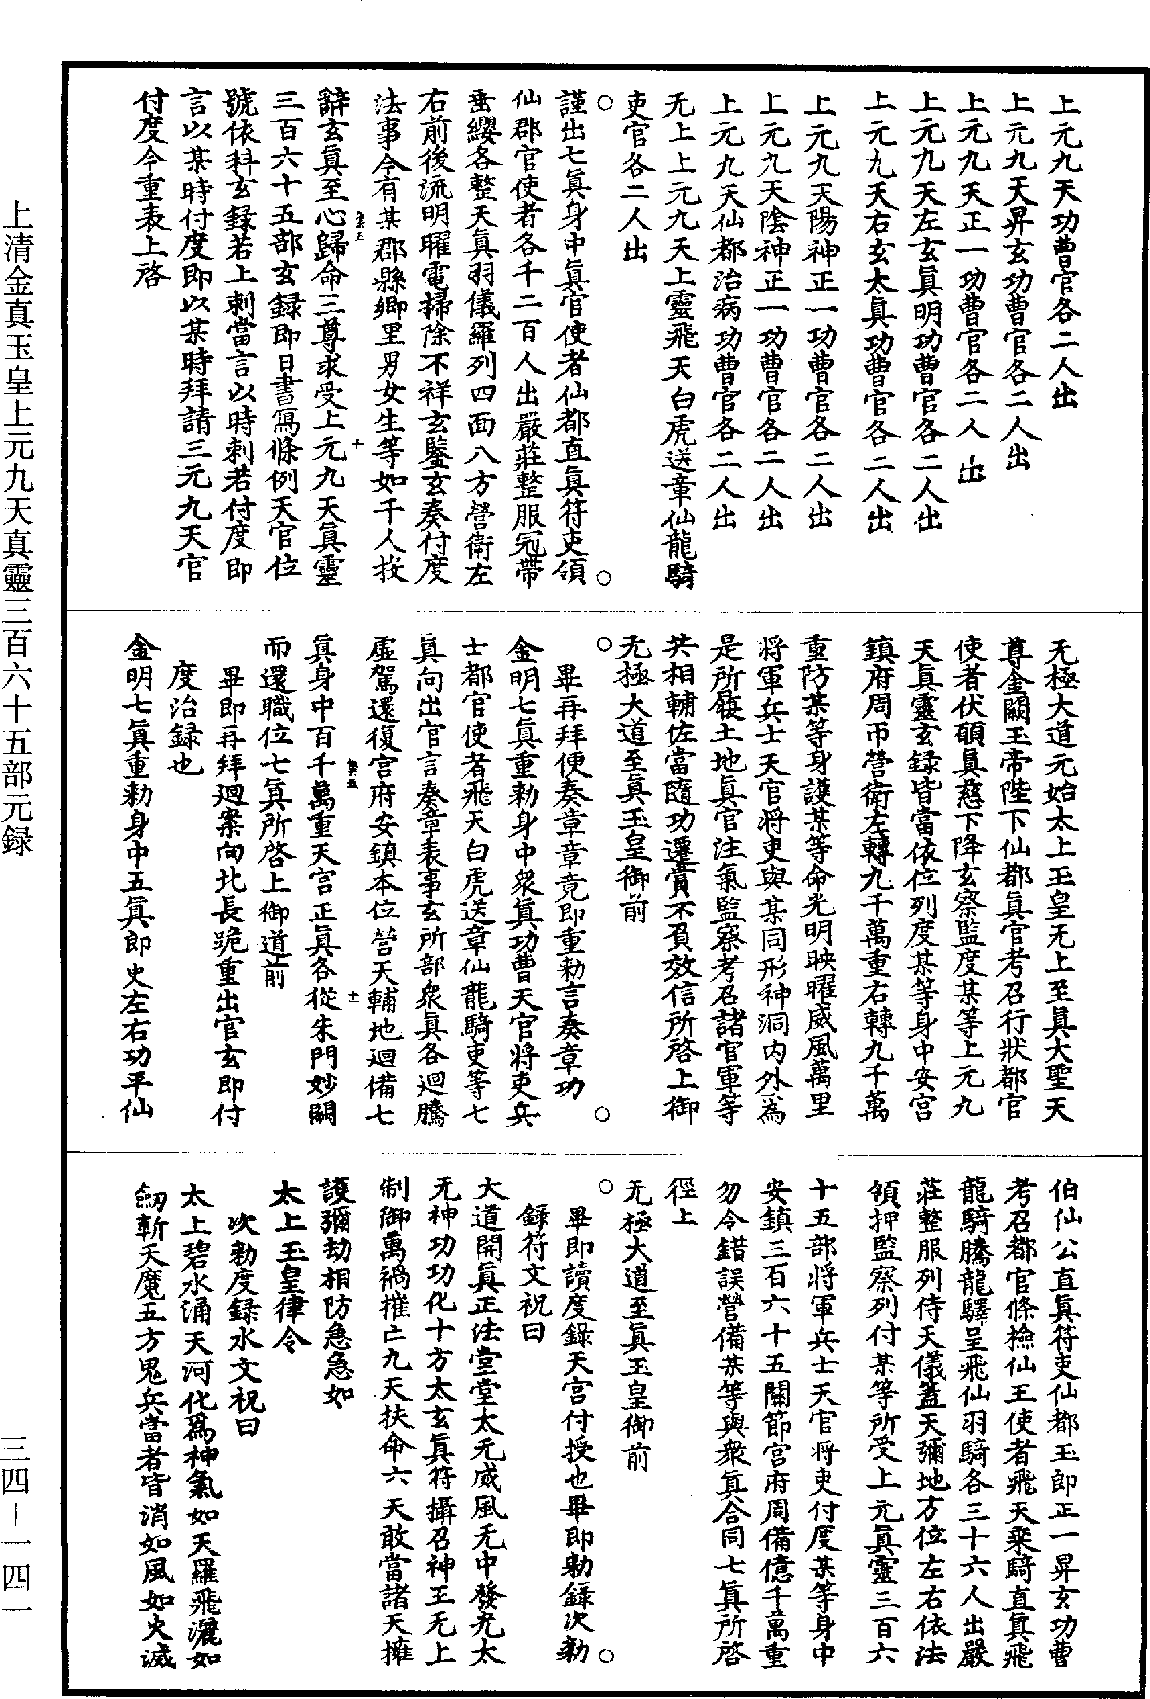 上元九天功曹官各二人出
上元九天昇玄功曹官各二人出
上元九天正一功曹官各二人出
上元九天左玄真明功曹官各二人出
上元九天右玄太真功曹官各二人出
上元九天陽神正一功曹官各二人出
上元九天陰神正一功曹官各二人出
上元九天仙都治病功曹官各二人出
无上上元九天上靈飛天白虎送章仙龍騎
吏官各二人出
謹出七真身中真官使者仙都直真符吏領
仙郡官使者各千二百人出嚴莊整服冠帶
垂纓各整天真羽儀羅列四面八方營衛左
右前後流明曜電掃除不祥玄鑒玄奏付度
法事今有某郡縣鄉里男女生等如干人投
辭玄真至心歸命三尊求受上元九天真靈
三百六十五部玄録即日書寫條例天官位
號依科玄録若上刺當言以時刺若付度即
言以某時付度即以某時拜請三元九天官
付度今重表上啓
无極大道元始太上玉皇无上至真大聖天
尊金闕玉帝陛下仙都真官考召行狀都官
使者伏願真慈下降玄察監度某等上元九
天真靈玄録皆當依位列度某等身中安宮
鎮府周帀營衛左轉九千萬重右轉九千萬
重防某等身護某等命光明映曜威風萬里
將軍兵士天官將吏與某同形神洞內外為
是所履土地真官注氣監察考召諸官軍等
共相輔佐當隨功遷賞不負效信所啓上御
无極大道至真玉皇御前
畢再拜便奏章章竟即重勑言奏章功
金明七真重勑身中衆真功曹天官將吏兵
士都官使者飛天白虎送章仙龍騎吏等七
真向出官言奏章表事玄所部衆真各迴騰
虛駕還復宮府安鎮本位營天輔地迴備七
真身中百千萬重天宮正真各從朱門妙闕
而還職位七真所啓上御道前
畢即再拜迴案向北長跪重出官玄即付
度治録也
金明七真重勑身中五真郎吏左右功平仙
伯仙公直真符吏仙都玉郎正一昇玄功曹
考召都官條檢仙王使者飛天乘騎直真飛
龍騎騰龍驛呈飛仙羽騎各三十六人出嚴
莊整服列侍天儀蓋天彌地方位左右依法
領押監察列付某等所受上元真靈三百六
十五部將軍兵士天官將吏付度某等身中
安鎮三百六十五關節宮府周備億千萬重
勿令錯誤營備某等與衆真合同七真所啓
徑上
无極大道至真玉皇御前
畢即讀度録天宮付授也畢即勑録次勑
録符文祝曰
大道開真正法堂堂太无威風无中發光太
无神功功化十方太玄真符攝召神王无上
制御萬禍摧亡九天扶命六天敢當諸天擁
護彌劫相防急急如
太上玉皇律令
次勑度録水文祝曰
太上碧水涌天河化爲神氣如天羅飛灑如
劒斬天魔五方鬼兵當者皆消如風如火滅
上清金真玉皇上元九天真靈三百六十五部元録
三四－一四一